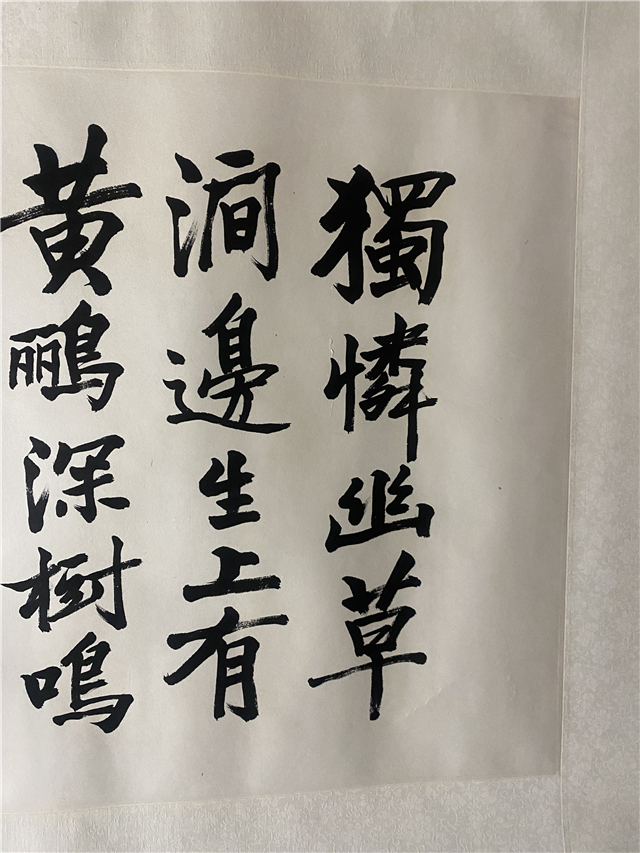 獨憐幽草
澗邊生上有
黄鸝深樹鳴